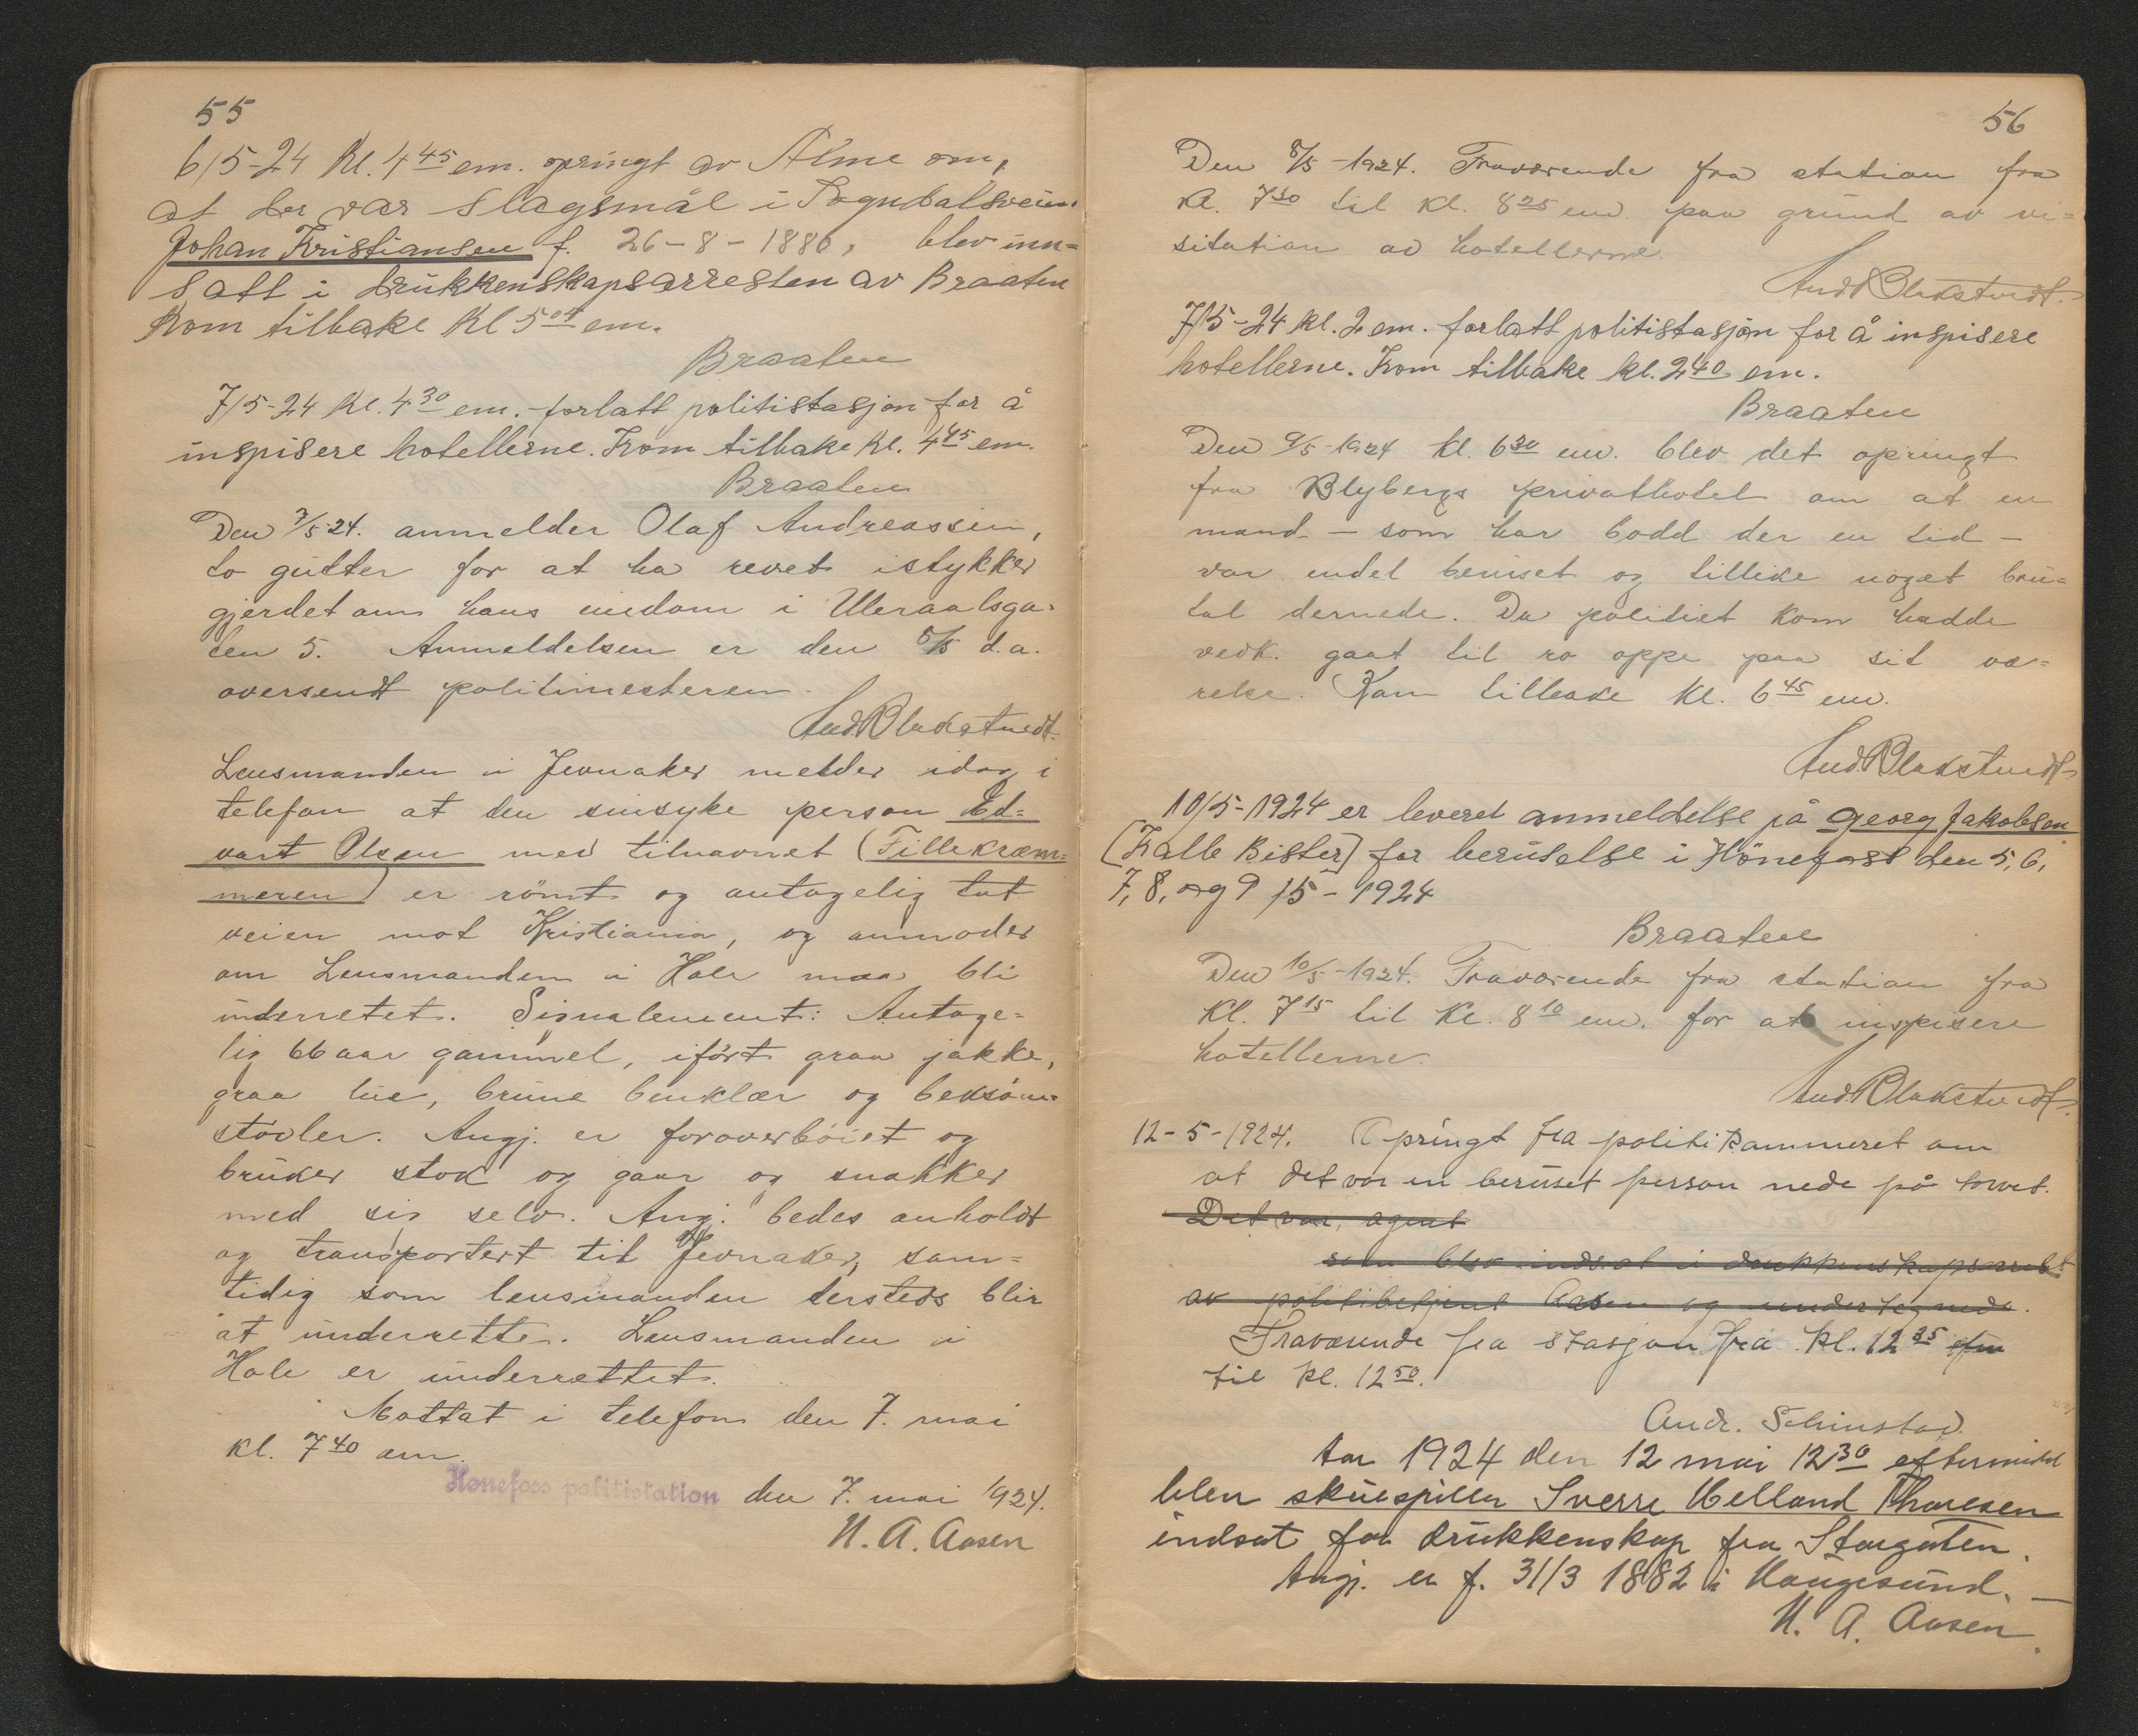 55
6/5-24 Kl. 4 45 em. opringt av Alme om,
at der var slagsmål i Sognedalsveien.
Johan Kristiansen f. 26-8-1880, blev inn=
satt i drukkenskapsarresten av Braaten
Kom tilbake Kl 5 04 em.
Braaten
7/5-24 Kl. 4 30 em. forlatt politistasjon for å
inspisere hotellerne. Kom tilbake kl. 4 45 em.
Braaten
Den 7/5 24. anmelder Olaf Andreassen,
to gutter for at ha revet istykker
gjerdet om hans eiedom i Ulleraalsga=
ten 5. Anmeldelsen er den 8/5 d.a.
oversendt politimesteren.
And. Blakstvedt.
Lensmanden i Jevnaker melder idag i
telefon at den sinsyke person Ed=
vart Olsen med tilnavnet (Fillekræm=
meren) er römt og antagelig tat
veien mot Kristiania, og anmoder
om Lensmanden i Hole maa bli
underretet. Signalement: Antage=
lig 66 aar gammel, ifört graa jakke,
graa lue, brune benklær og beksöm=
stövler. Angj. er foroverböiet og
bruker stok og gaar og snakker
med sig selv. Angj. bedes anholdt
og transportert til Jevnaker, sam=
tidig som lensmanden dersteds blir
at underrette. Lensmanden i
Hole er underrettet.
Mottat i telefon den 7. mai
kl. 7 40 em.
Hønefoss politistation den 7. mai 1924.
N. A. Aasen
56
Den 8/5-1924. Fraværende fra station fra
kl. 7 30 til kl. 8 25 em. paa grund av vi=
sitation av hotellerne.
And. Blakstvedt.
7/5-24 kl. 2 em. forlatt politistasjon for å inspisere
hotellerne. Kom tilbake kl. 2 40 em.
Braaten
Den 9/5-1924 kl. 6 30 em. blev det opringt
fra Blybergs privathotel om at en
mand - som har bodd der en tid -
var endel beruset og tillike noget bru=
tal dernede. Da politiet kom hadde
vedk. gaat til ro oppe paa sit væ=
relse. Kom tilbake kl. 6 45 em.
And. Blakstvedt.
10/5-1924 er leveret anmeldelse på Georg Jakobsen
[Kalle Bister] for beruselse i Hönefoss den 5, 6,
7, 8, og 9 /5-1924
Braaten
Den 10/5-1924. Fraværende fra station fra
Kl. 7 15 til Kl. 8 10 em. for at inspisere
hotellerne.
And. Blakstvedt.
12-5-1924. Opringt fra politikammeret om
at det var en beruset person nede på torvet.
Det var, agent
som blev indsat i drukkenskapsarrest
av politibetjent Aasen og undertegnede.
Fraværende fra stasjon fra kl. 12 35 efm
til kl. 12 50.
Andr. Schinstad.
Aar 1924 den 12 mai 12 30 eftermidd
blev skuespiller Sverre Helland Thoresen
indsat for drukkenskap fra Storgaten.
Angj. er f. 31/3 1882 i Haugesund. —
N. A. Aasen.